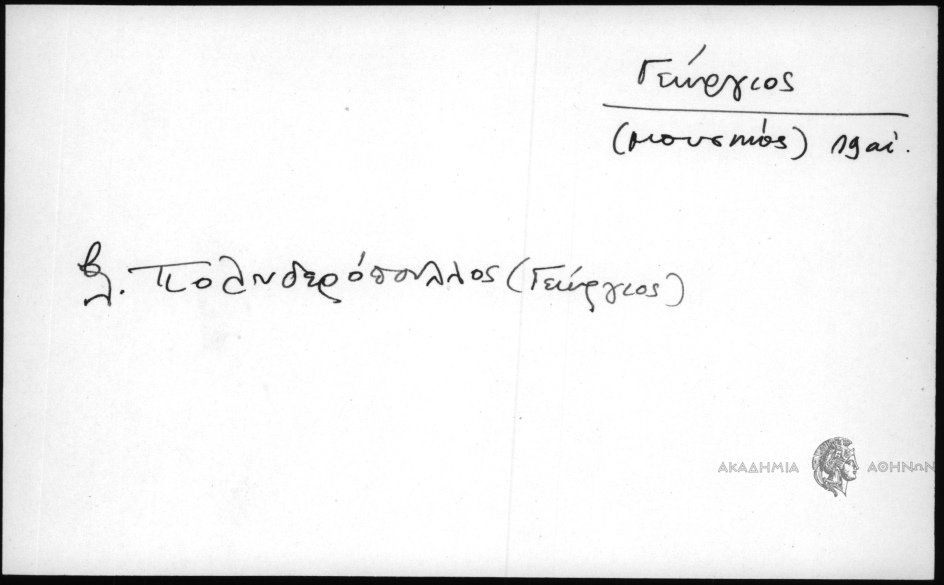 Γεώργιος
(μουσικός) 19 αἰ.
βλ. Πολυδερόπουλλος (Γεώργιος)
ΑΚΑΔΗΜΙΑ ΑΘΗΝΩΝ